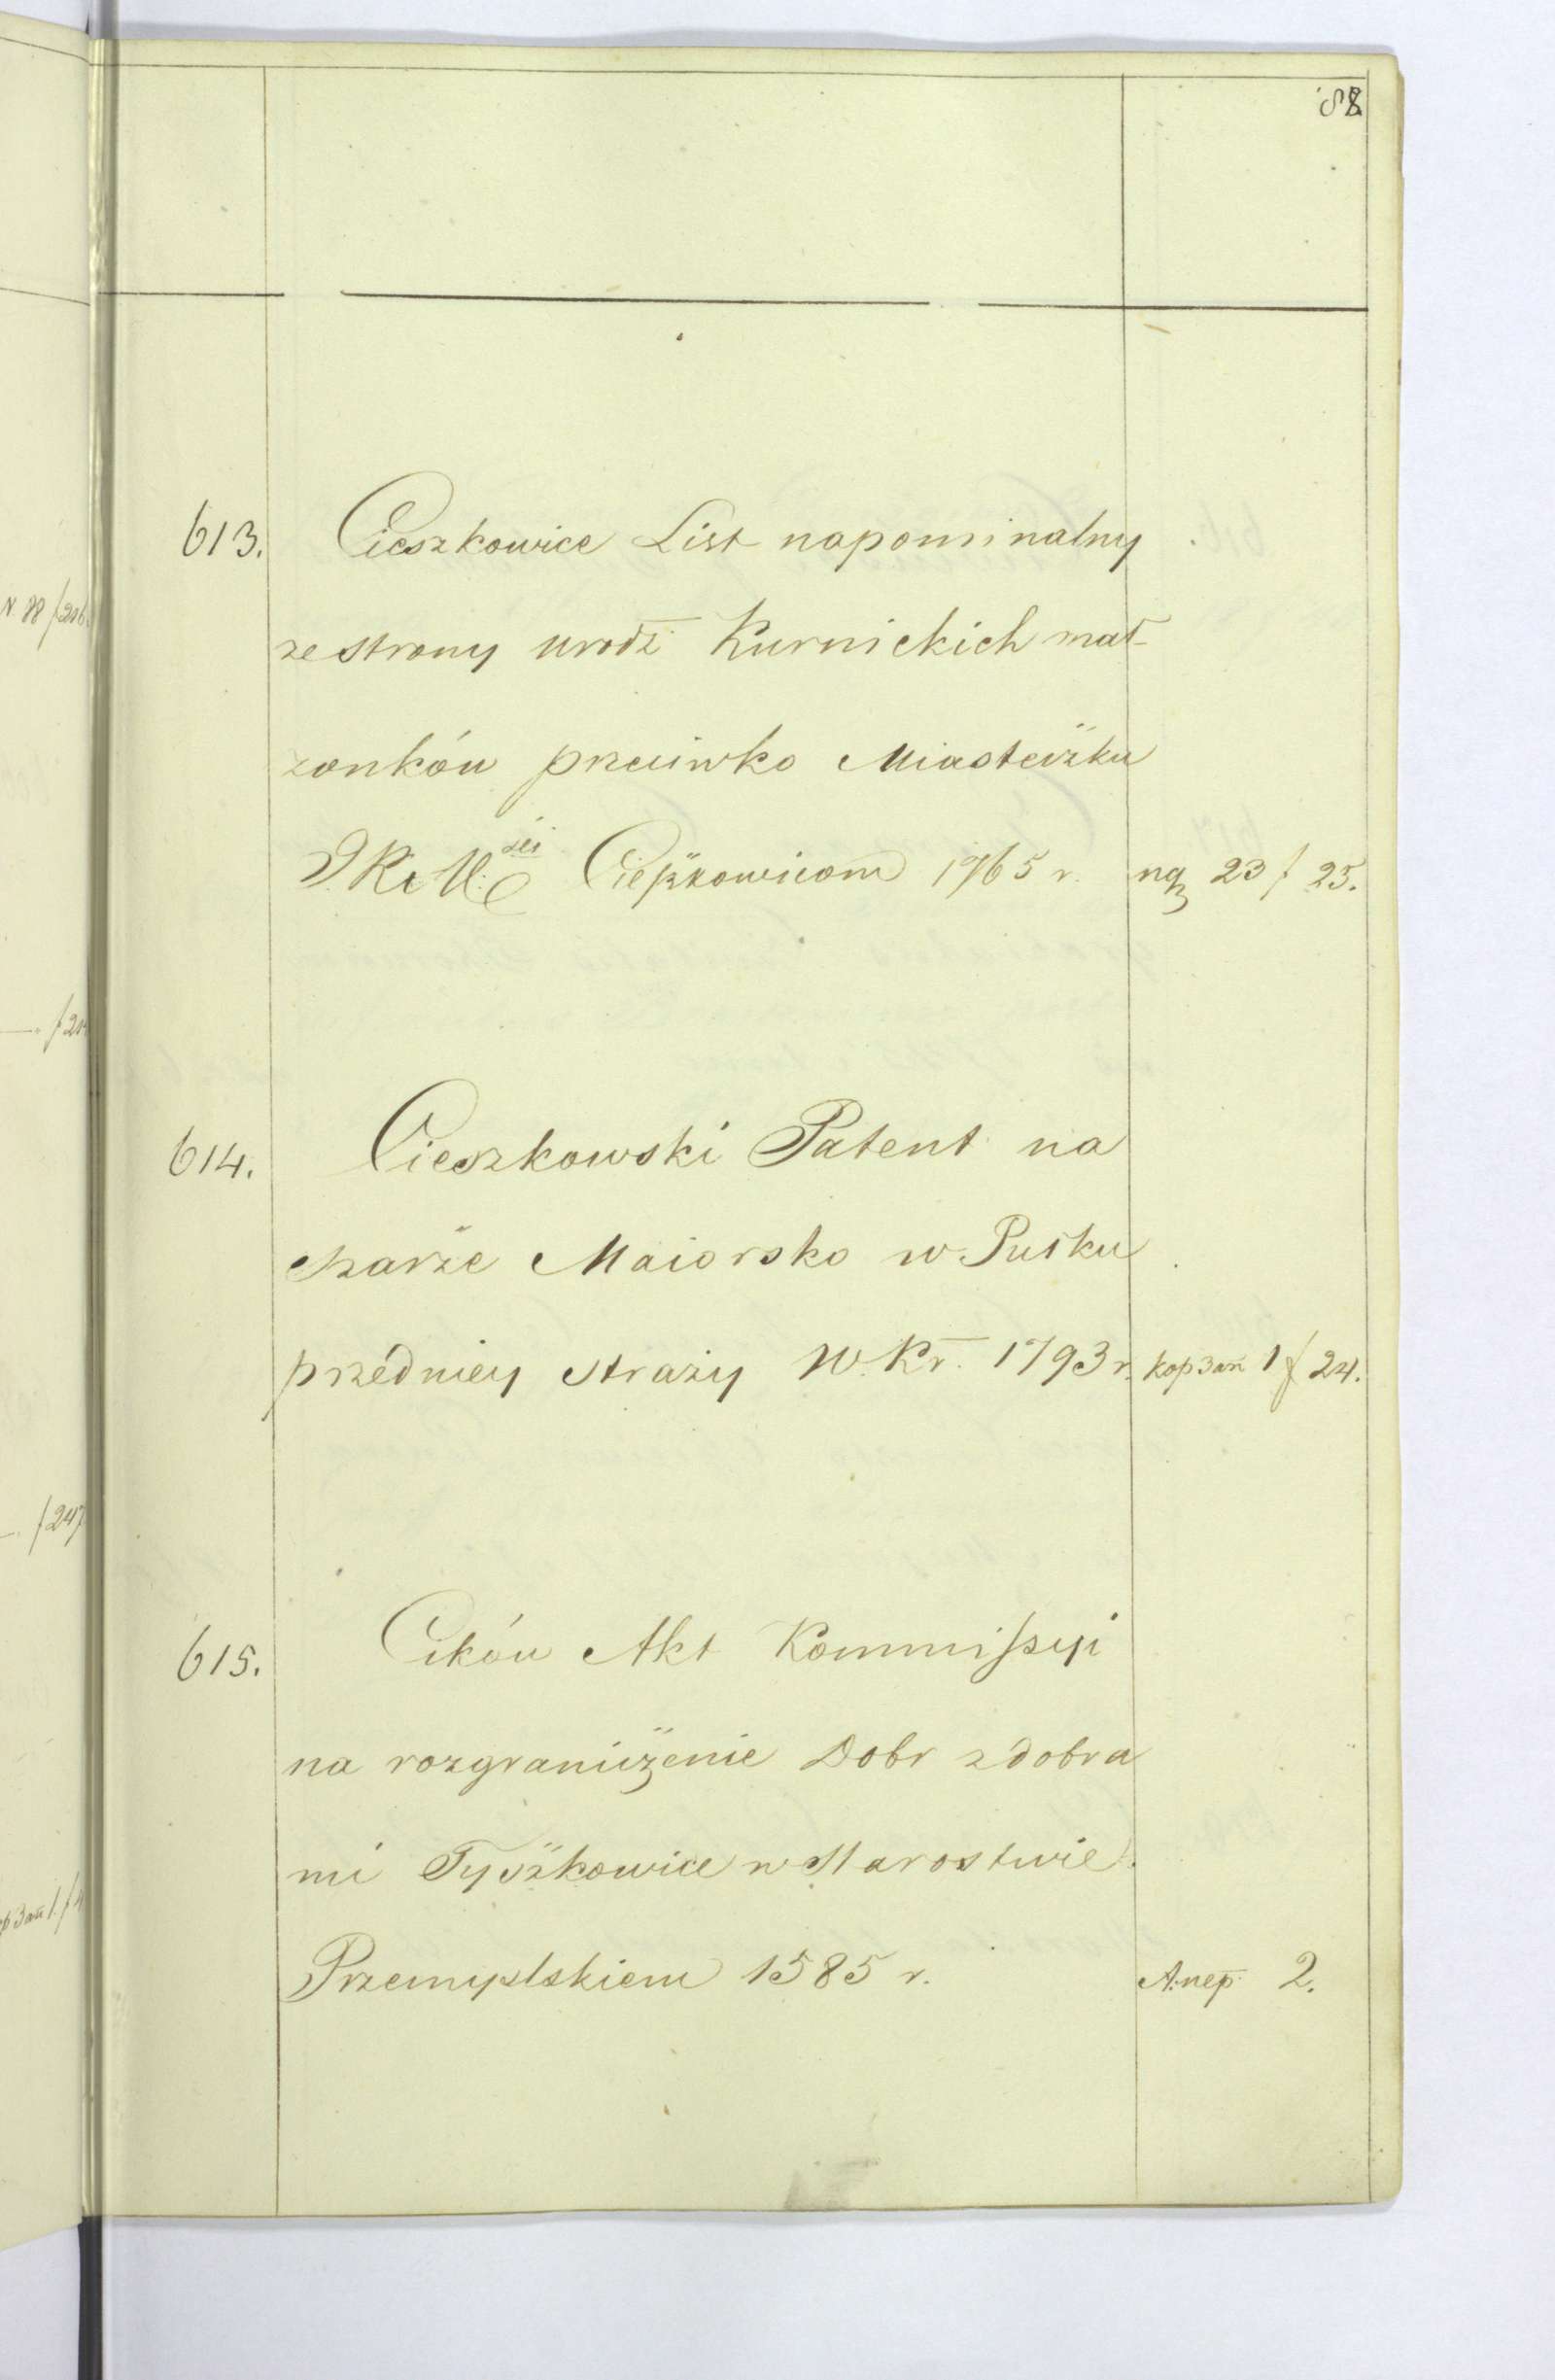 88
613. Cieszkowice List napominalny
ze strony urodz Kurnickich mał-
zonków przeciwko Miasteczku
J. K. Mści Cieszkowicom 1765 r. nq 23 f 25.
614. Cieszkowski Patent na
szarże Maiorsko w Pułku
przedniey straży W. Kr. 1793 r. кор зап 1 f 24.
615. Cików Akt Kommissyi
na rozgraniczenie Dobr z dobra
mi Tyszkowice w Starostwie
Przemyslskiem 1585 r. А. пер. 2.